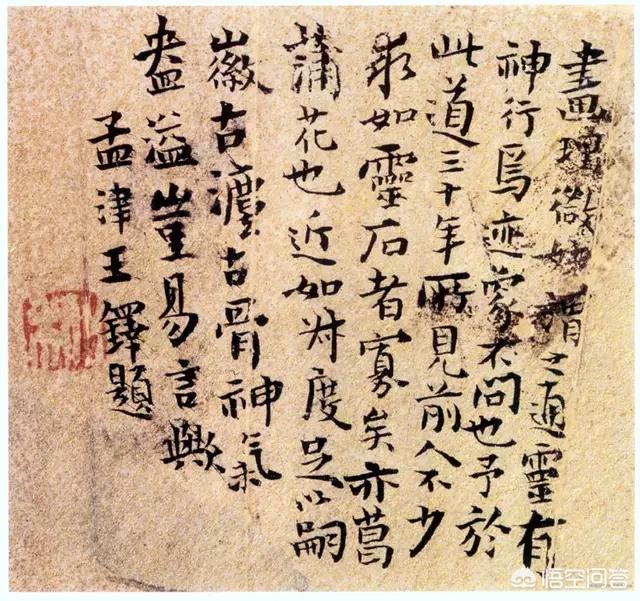 畫理微妙謂之通靈有
神行焉迹象不問也予於
此道三十年所見前人不少
求如靈石者寡矣亦菖
蒲花也近如度足以嗣
徽古古骨神氣
盎溢豈易言歟
孟津王鐸題
悟空问答